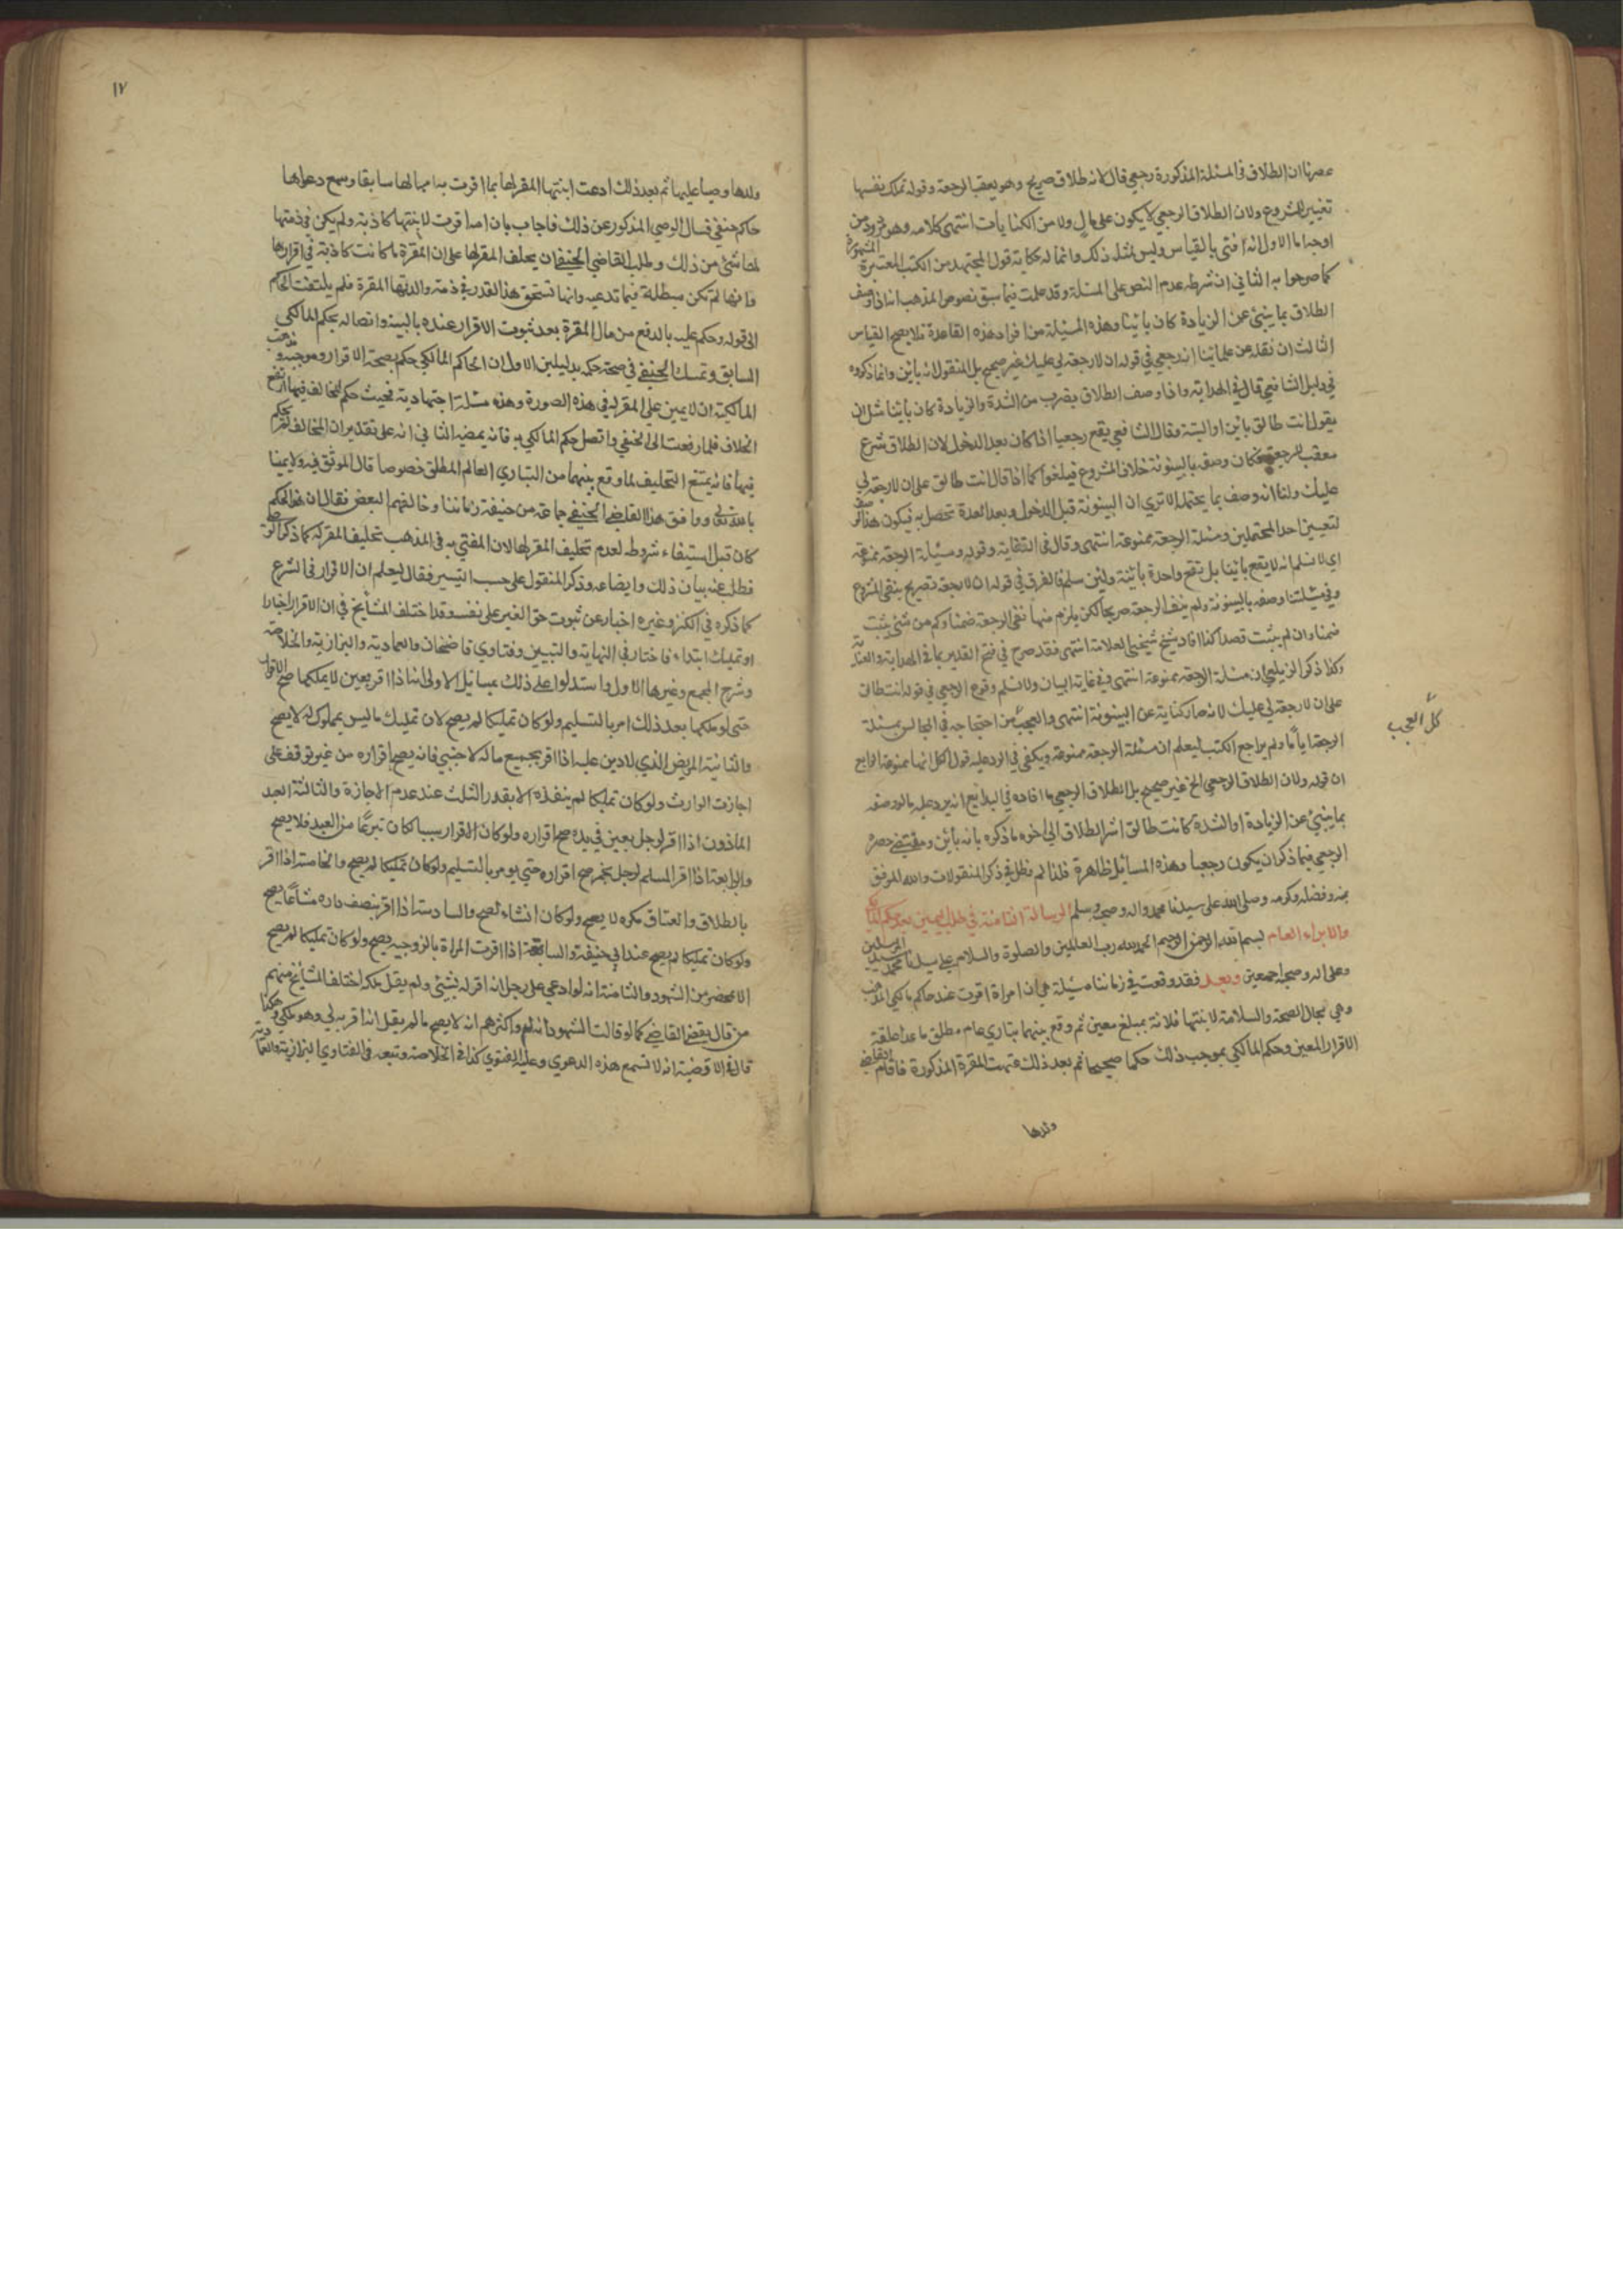 عصرنا ان الطلاق في المسئلة المذكورة رجعي قال لانه طلاق صريح وهو يعقب الرجعة وقوله تملك نفسها
تغيير للمشروع ولان الطلاق الرجعي لا يكون على مال ولا من الكنايات انتهى كلامه وهو مردود من
اوجه اما الاول انه افتى بالقياس وليس لمثله ذلك وانما له حكاية قول المجتهد من الكتب المعتبرة المشهورة
كما صرحوا به الثاني ان شرطه عدم النص على المسئلة وقد علمت فيما سبق نصوص المذهب انه اذا وصف
الطلاق بما ينبئ عن الزيادة كان بائنا وهذه المسئلة من افراد هذه القاعدة فلا يصح القياس
الثالث ان نقله عن علمائنا انه رجعي في قوله ان لا رجعة لي عليك غير صحيح بل المنقول انه بائن وانما ذكروه
في دليل الشافعي قال في الهداية واذا وصف الطلاق بضرب من الشدة والزيادة كان بائنا مثل ان
يقول انت طالق بائن او البتة وقال الشافعي يقع رجعيا اذا كان بعد الدخول لان الطلاق شرع
معقب للرجعة فكان وصفه بالبينونة خلاف المشروع فيلغوا كما اذا قال انت طالق على ان لا رجعة لي
عليك ولنا انه وصف بما يحتمله الا ترى ان البينونة قبل الدخول وبعد العدة تحصل به فيكون هذا الوصف
لتعيين احد المحتملين ومسئلة الرجعة ممنوعة انتهى وقال في الكفاية وقوله ومسئلة الرجعة ممنوعة
اي لا نسلم انه لا يقع بائنا بل تقع واحدة بائنة ولئن سلم فالفرق في قوله ان لا رجعة تصريح بنفي المشروع
وفي مسئلتنا وصفه بالبينونة ولم ينف الرجعة صريحا لكن يلزم منها نفي الرجعة ضمنا وكم من شئ يثبت
ضمنا وان لم يثبت قصدا كذا افاد شيخ شيخي العلامة انتهى فقد صرح في فتح القدير بما في الهداية والعناية
وكذا ذكر الزيلعي ان مسئلة الرجعة ممنوعة انتهى وفي غاية البيان ولا نسلم وقوع الرجعي في قوله انت طالق
على ان لا رجعة لي عليك لانه صار كناية عن البينونة انتهى والعجب من احتجاجه في المجالس بمسئلة
كل العجب
الرجعة اياما ولم يراجع الكتب ليعلم ان مسئلة الرجعة ممنوعة ويكفي في الرد عليه قول الكل انها ممنوعة الرابع
ان قوله ولان الطلاق الرجعي الخ غير صحيح بل الطلاق الرجعي ما افاده في البدائع انه يرد عليه ما لو وصفه
بما ينبئ عن الزيادة او الشدة كانت طالق اشر الطلاق الى اخره ما ذكره بانه بائن ومقتضى حصره
الرجعي فيما ذكر ان يكون رجعيا وهذه المسائل ظاهرة فلذا لم نطل في ذكر المنقولات والله الموفق
بمنه وفضله وكرمه وصلى الله على سيدنا محمد واله وصحبه وسلم الرسالة الثامنة في طلب اليمين بعد حكم المالكي
والابراء العام بسم الله الرحمن الرحيم الحمد لله رب العالمين والصلوة والسلام على سيدنا محمد سيد المرسلين
وعلى اله وصحبه اجمعين وبعد فقد وقعت في زماننا مسئلة هي ان امراة اقرت عند حاكم مالكي المذهب
وهي بحال الصحة والسلامة لابنتها فلانة بمبلغ معين ثم وقع بينهما تباري عام مطلق ما عدا
الاقرار المعين وحكم المالكي بموجب ذلك حكما صحيحا ثم بعد ذلك المقرة المذكورة فاقام القاضي
ولدها
١٧
ولدها وصيا عليها ثم بعد ذلك ادعت ابنتها المقر لها بما اقرت به امها لها سابقا وسمع دعواها
حاكم حنفي فسال الوصي المذكور عن ذلك فاجاب بان امه اقرت لابنتها كاذبة ولم يكن في ذمتها
لها شئ من ذلك وطلب القاضي الحنفي ان يحلف المقر لها على ان المقرة ما كانت كاذبة في اقرارها
وانها لم تكن مبطلة فيما تدعيه وانها تستحق هذا القدر في ذمة والدتها المقرة فلم يلتفت الحاكم
الى قوله وحكم عليه بالدفع من مال المقرة بعد ثبوت الاقرار عنده بالبينة واتصاله بحكم المالكي
السابق وتمسك الحنفي في صحة حكمه بدليلين الاول ان الحاكم المالكي حكم بصحة الاقرار وموجبه ومذهب
المالكية ان لا يمين على المقر له في هذه الصورة وهذه مسئلة اجتهادية فحيث حكم المخالف فيها ارتفع
الخلاف فلما رفعت الى الحنفي واتصل حكم المالكي به فانه يمضيه الثاني انه على تقدير ان المخالف لم يحكم
فيها فانه يمتنع التحليف لما وقع بينهما من التباري العام المطلق خصوصا قال الموثق فيه ولا يمينا
بالله تعالى ووافق هذا القاضي الحنفي جماعة من حنيفة زماننا وخالفهم البعض فقال ان هذا الحكم
كان قبل استيفاء شروطه لعدم تحليف المقر لها لان المفتى به في المذهب تحليف المقر له كما ذكر
فطلب عنه بيان ذلك وايضاعه وذكر المنقول على حسب التيسير فقال ليعلم ان الاقرار في الشرع
كما ذكره في الكنز وغيره اخبار عن ثبوت حق الغير على نفسه وقد اختلف المشايخ في ان الاقرار اخبار
او تمليك ابتداء فاختار في النهاية والتبيين وفتاوي قاضخان والعمادية والبزازية والخلاصة
وشرح المجمع وغيرها الاول واستدلوا على ذلك بمسائل الاولى انه اذا اقر بعين لا يملكها صح الاقرار
حتى لو ملكها بعد ذلك امر بالتسليم ولو كان تمليكا لم يصح لان تمليك ما ليس بمملوك له لا يصح
والثانية المريض الذي لا دين عليه اذا اقر بجميع ماله لاجنبي فانه يصح اقراره من غير توقف على
اجازت الوارث ولو كان تمليكا لم ينفذ الا بقدر الثلث عند عدم الاجازة والثالثة العبد
الماذون اذا اقر لرجل بعين في يده صح اقراره ولو كان الاقرار سببا لكان تبرعا من العبد فلا يصح
والرابعة اذا اقر المسلم لرجل بخمر صح اقراره حتى يومر بالتسليم ولو كان تمليكا لم يصح والخامسة اذا اقر
بالطلاق والعتاق مكره لا يصح ولو كان انشاء لصح والسادسة اذا اقر بنصف داره مشاعا يصح
ولو كان تمليكا لم يصح عند ابي حنيفة والسابعة اذا اقرت المراة بالزوجية يصح ولو كان تمليكا لم يصح
الا بمحضر من الشهود والثامنة انه لو ادعى على رجل انه اقر له بشئ ولم يقل ملكه اختلف المشايخ منهم
من قال يقضي القاضي كما لو قالت الشهود واكثرهم انه لا يصح ما لم يقل انه اقر به لي وهو ملكي وهكذا
قال في الاقضية انه لا تسمع هذه الدعوى وعليه الفتوى كذا في الخلاصة وتبعه في الفتاوي البزازية